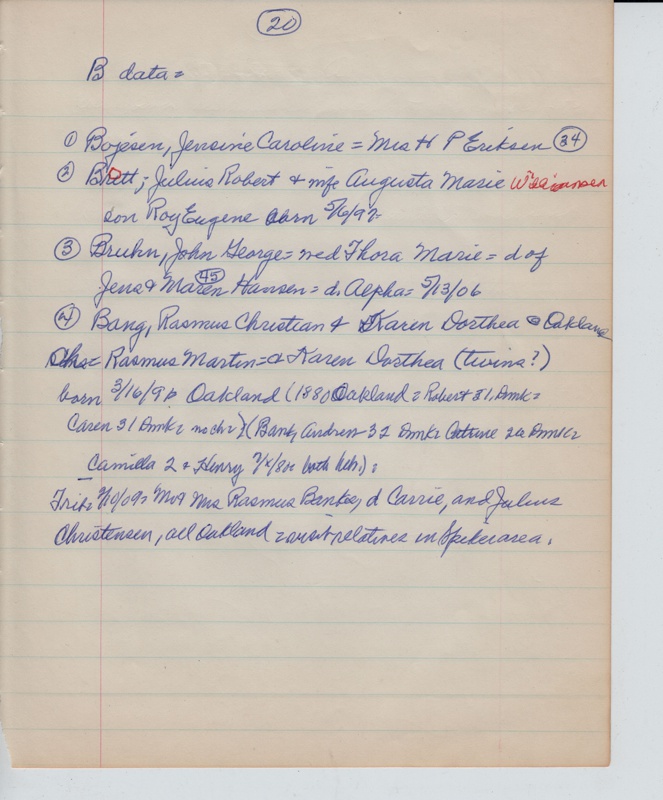 20
B data =
① Bojesen, Jensine Caroline = Mrs H P Eriksen 34
② Britt; Julius Robert & wife Augusta Marie
son Roy Eugene born 5/6/92
③ Bruhn, John George = wed Thora Marie = d of
45
Jens & Maren Hansen = d. Alpha = 5/13/06
④ Bang, Rasmus Christian & Karen Dorthea Oakland
Chs = Rasmus Martin = & Karen Dorthea (twins?)
born 3/16/91 Oakland (1880 Oakland = Robert 31, Dmk =
Caren 31 Dmk = no chr) (Bank, Andrew 32 Dmk = 26 Dmk =
Camilla 2 & Henry 7/4/80 = both Neb.) =
Trib = 9/10/09 = Mr & Mrs Rasmus Banks, d Carrie, and Julius
Christensen, all Oakland = visit relatives in Spiker area.